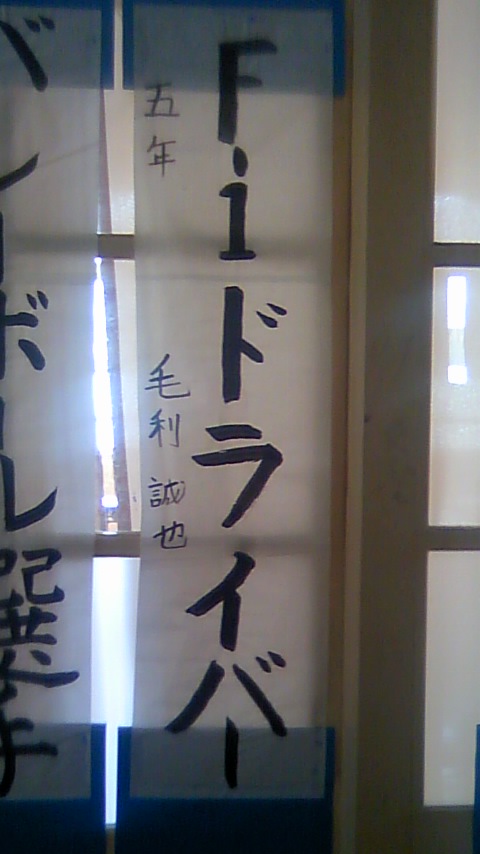 Fiドライバー
五年 毛利 誠也
バレーボール選手